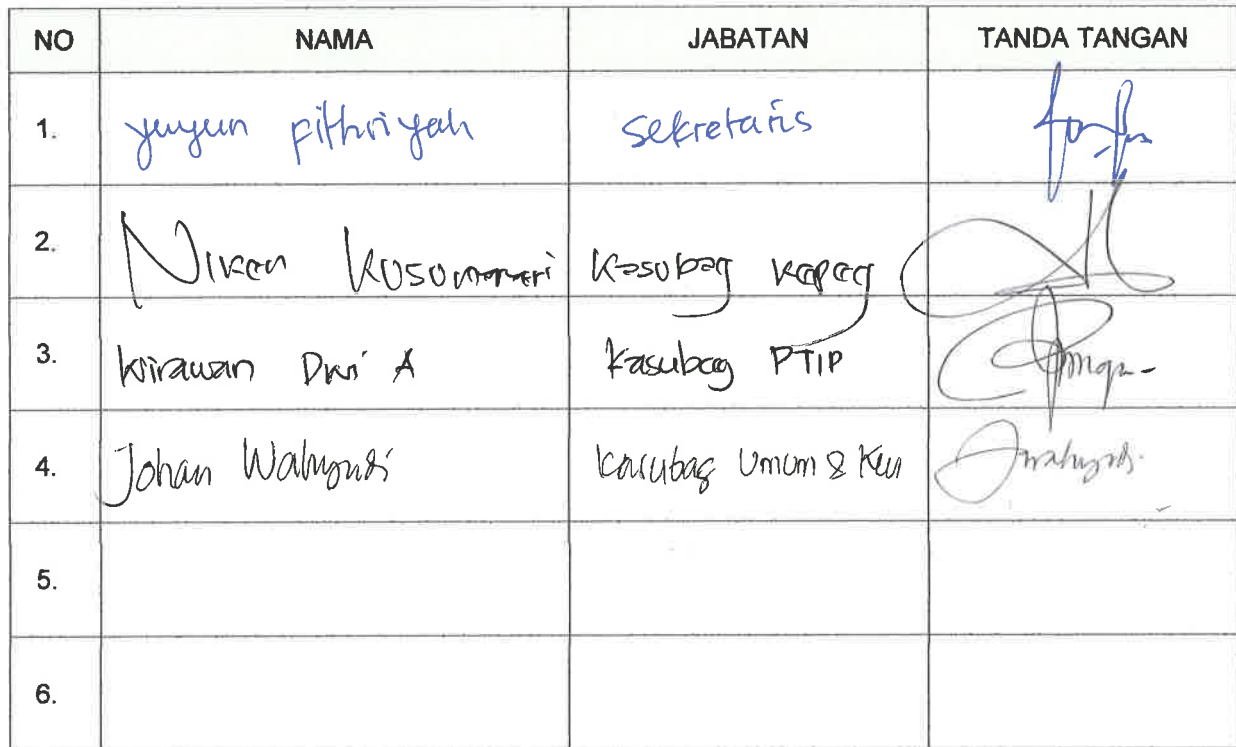 NO NAMA JABATAN TANDA TANGAN
1. yuyun Fithriyah Sekretaris
2. Niken Kusumawari Kasubag Kepeg
3. Wirawan Dwi A Kasubag PTIP
4. Johan Wahyudi Kasubag Umum & Keu
5.
6.